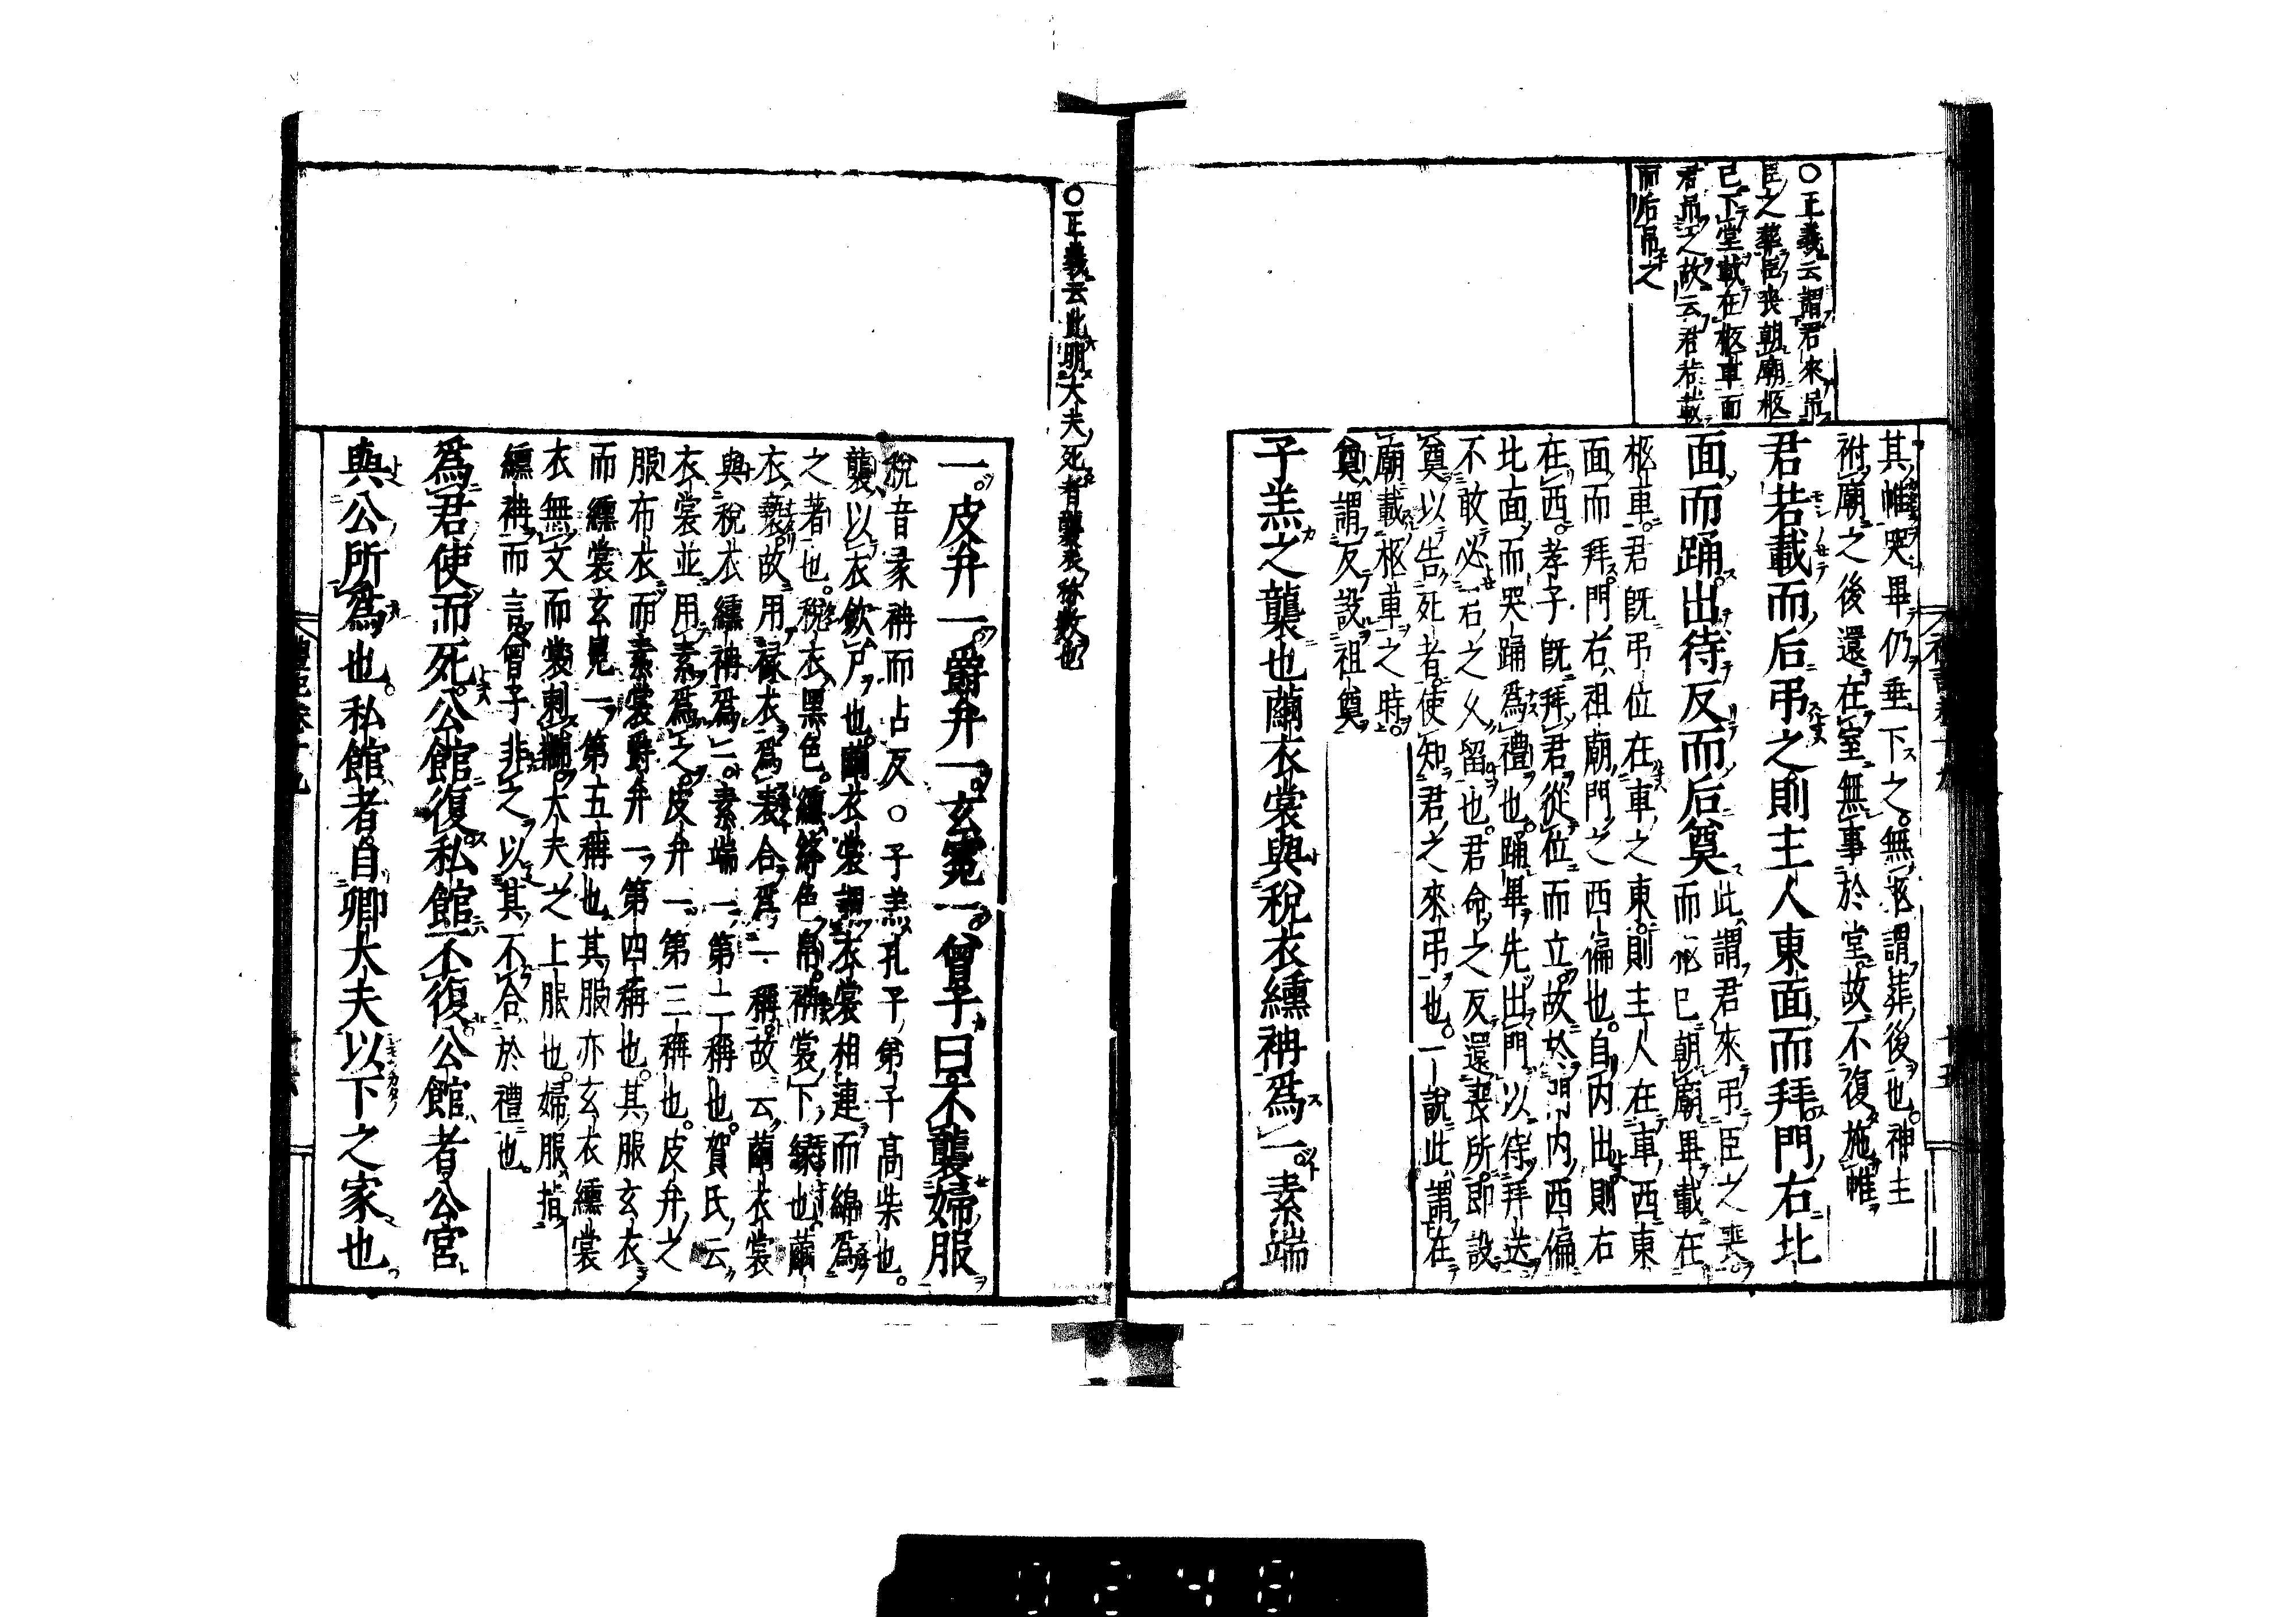 〇正義云謂君來吊
臣之葬臣喪朝廟柩
已下堂載在柩車而
君吊之故云君若載
而后吊之
其帷哭畢仍垂下之無柩謂葬後也神主
祔廟之後還在室無事於堂故不復施帷
君若載而后弔之則主人東面而拜門右北
面而踊出待反而后奠此謂君來弔臣之喪
而柩已朝廟畢載在
柩車君既弔位在車之東則主人在車西東
面而拜門右祖廟門之西偏也自内出則右
在西孝子既拜君從位而立故於門内西偏
北面而哭踊爲禮也踊畢先出門以待拜送
不敢必君之久留也君命之反還喪所即設
奠以告死者使知君之來弔也一說此謂在
廟載柩車之時
奠謂反設祖奠
子羔之襲也繭衣裳與稅衣纁袡爲一素端
禮記卷十九
十五
〇正義云此明大夫死者襲衣称數也
一皮弁一爵弁一玄冕一曾子曰不襲婦服
稅音彖袡而占反〇子羔孔子弟子高柴也
襲以衣歛尸也繭衣裳謂衣裳相連而綿爲
之著也稅衣黑色纁絳色帛袡裳下緣也繭
衣褻故用褖衣爲表合爲一稱故云繭衣裳
與稅衣纁袡爲一素端一第二稱也賀氏云
衣裳並用素爲之皮弁一第三稱也皮弁之
服布衣而素裳爵弁一第四稱也其服玄衣
而纁裳玄冕一第五稱也其服亦玄衣纁裳
衣無文而裳刺黼大夫之上服也婦服指
纁袡而言曾子非之以其不合於禮也
爲君使而死公館復私館不復公館者公宮
與公所爲也私館者自卿大夫以下之家也
禮記卷十九
十六
0248